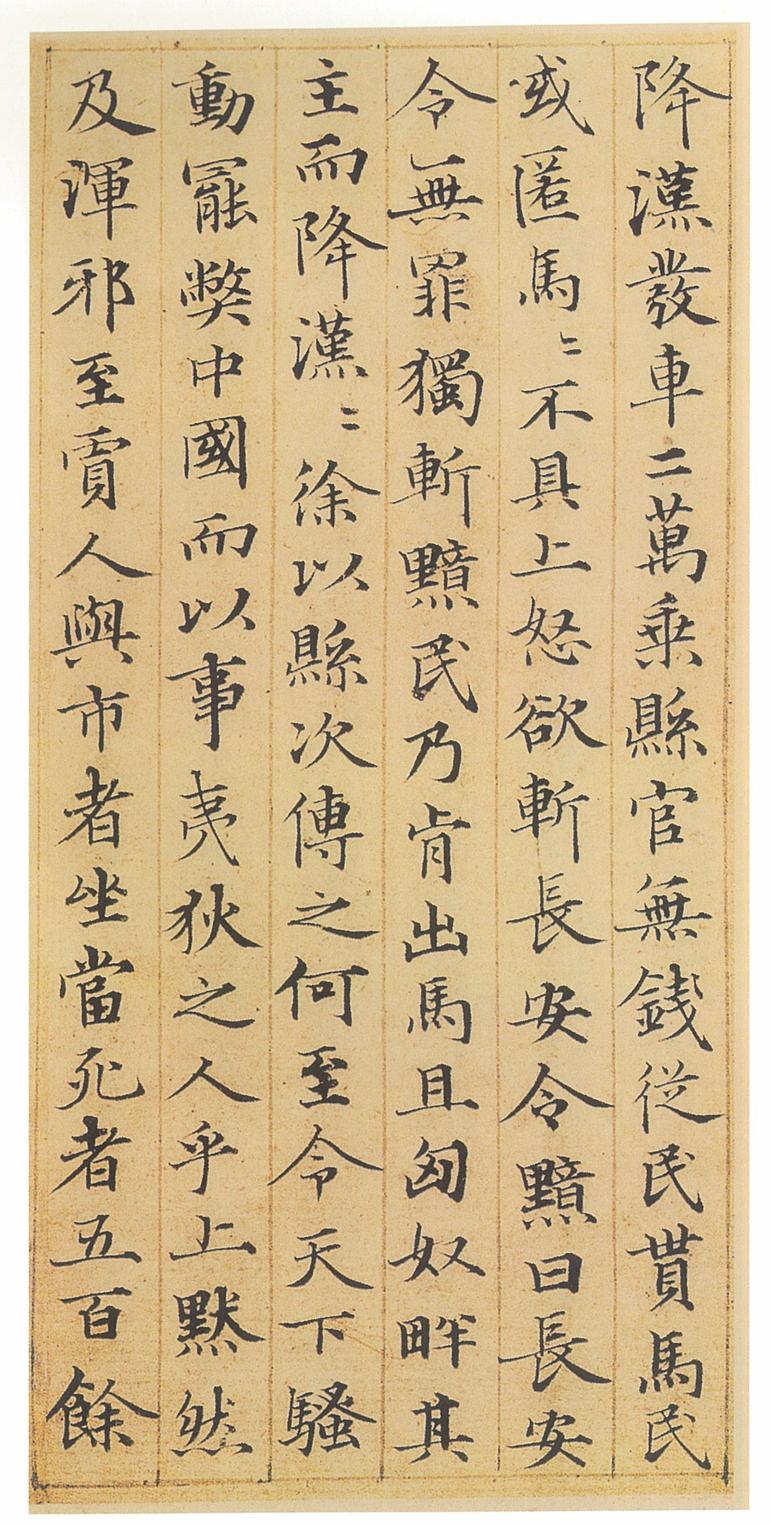 降漢發車二萬乗縣官無錢従民貰馬民
或匿馬〻不具上怒欲斬長安令黯曰長安
令無罪獨斬黯民乃肯出馬且匈奴畔其
主而降漢〻徐以縣次傳之何至令天下騷
動罷弊中國而以事夷狄之人乎上黙然
及渾邪至賈人與市者坐當死者五百餘